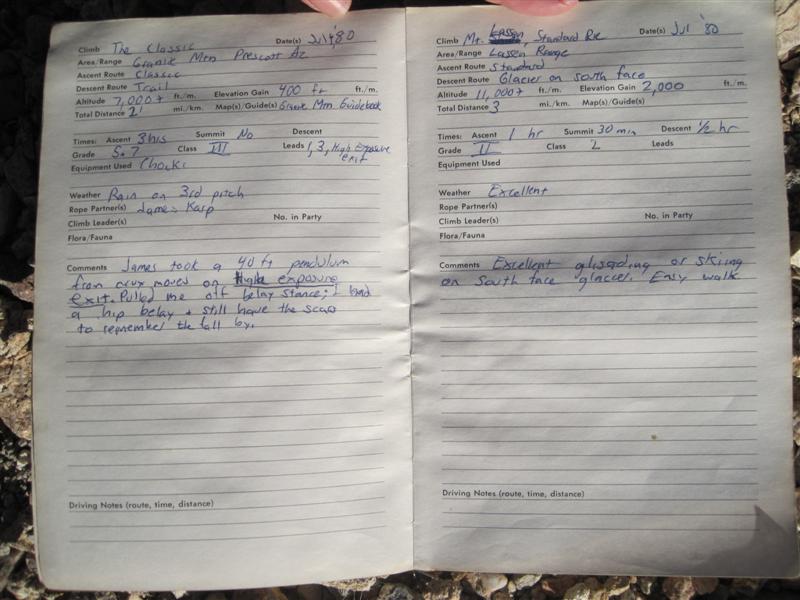 Climb The Classic Date(s) Jul 4, 80
Area/Range Granite Mtn Prescott Az
Ascent Route Classic
Descent Route Trail
Altitude 7,000+ ft./m. Elevation Gain 400 ft ft./m.
Total Distance 2 mi./km. Map(s)/Guide(s) Granite Mtn Guidebook
Times: Ascent 3 hrs Summit No Descent
Grade 5.7 Class III Leads 1, 3, High Exposure exit
Equipment Used Chocks
Weather Rain on 3rd pitch
Rope Partner(s) James Karp
Climb Leader(s) No. in Party
Flora/Fauna
Comments James took a 40 ft pendulum
from crux moves on High exposure
exit. Pulled me off belay stance; I had
a hip belay & still have the scars
to remember the fall by.
Driving Notes (route, time, distance)
Climb Mt. Lassen, Standard Rte Date(s) Jul '80
Area/Range Lassen Range
Ascent Route Standard
Descent Route Glacier on south face
Altitude 11,000+ ft./m. Elevation Gain 2,000 ft./m.
Total Distance 3 mi./km. Map(s)/Guide(s)
Times: Ascent 1 hr Summit 30 min Descent 1/2 hr
Grade II Class 2 Leads
Equipment Used
Weather Excellent
Rope Partner(s)
Climb Leader(s) No. in Party
Flora/Fauna
Comments Excellent glissading or skiing
on South face glacier. Easy walk
Driving Notes (route, time, distance)